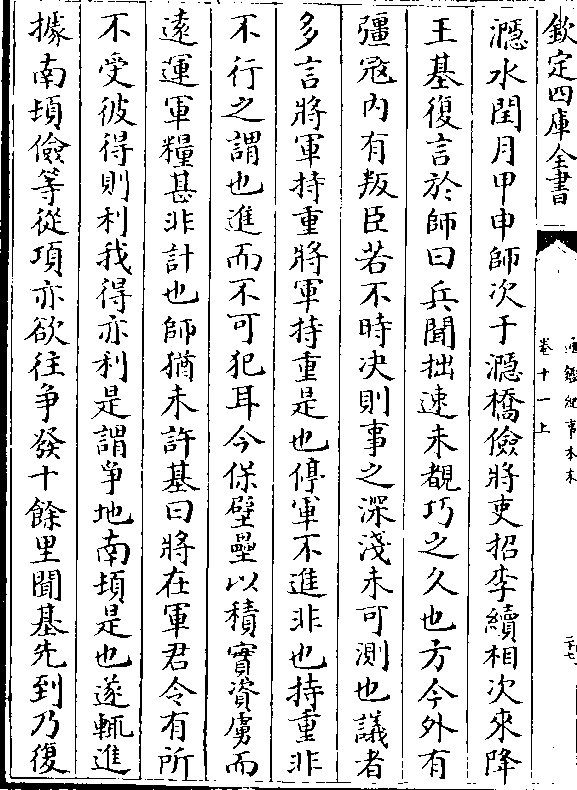 欽定四庫全書
通鑑紀事本末
卷十一上
二十七
㶏水閏月甲申師次于㶏橋儉將史招李續相次來降
王基復言於師曰兵聞拙速未覩巧之久也方今外有
彊冦内有叛臣若不時决則事之深淺未可測也議者
多言將軍持重將軍持重是也停軍不進非也持重非
不行之謂也進而不可犯耳今保壁壘以積實資虜而
逺運軍糧甚非計也師猶未許基曰將在軍君令有所
不受彼得則利我得亦利是謂爭地南頓是也遂輒進
據南頓儉等從項亦欲往爭發十餘里聞基先到乃復